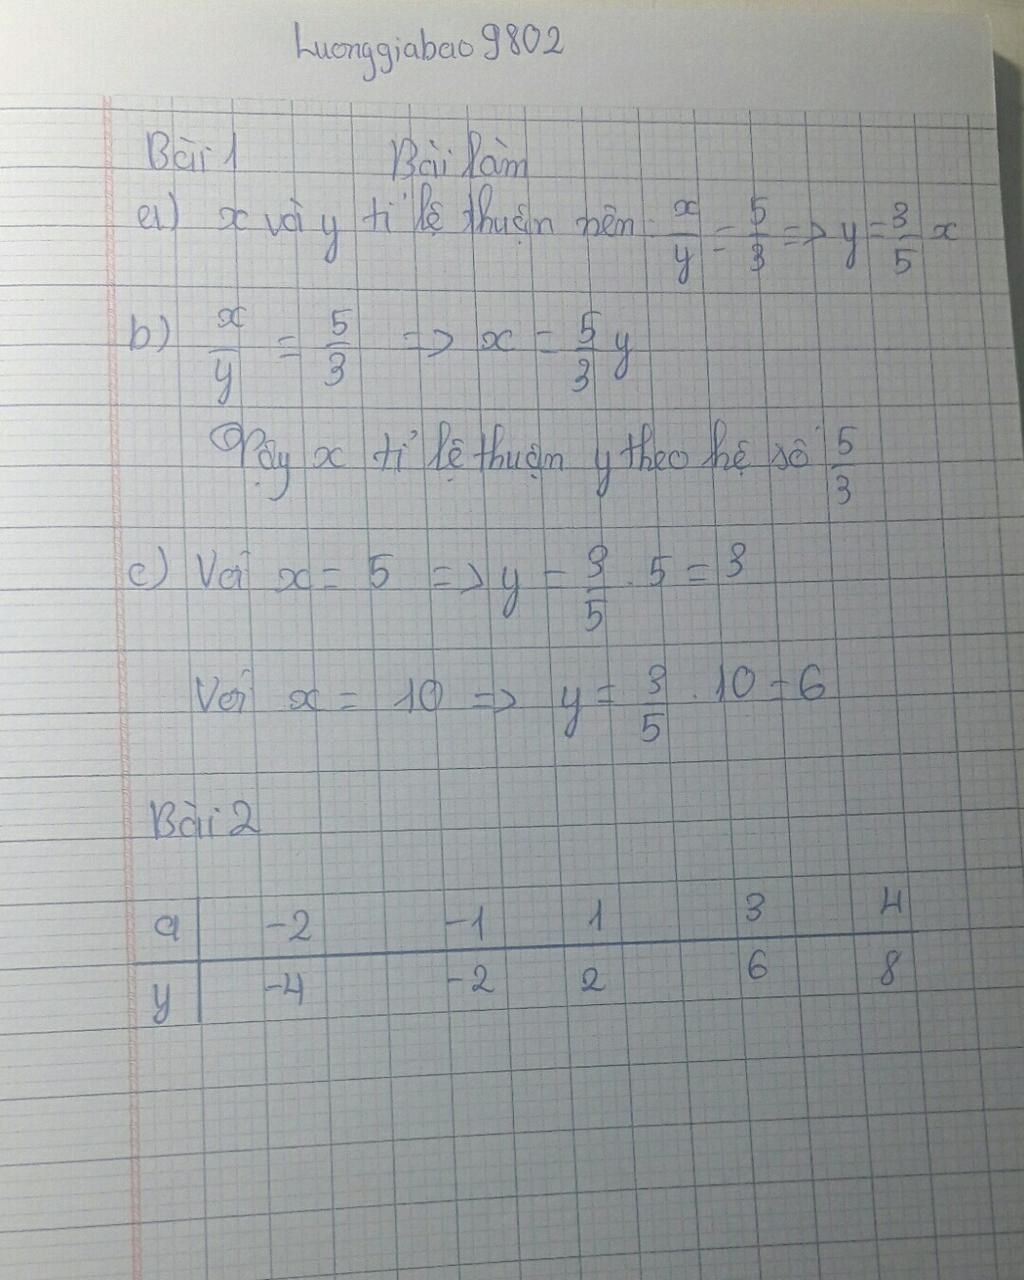 Luonggiabao9802
Bài 1 Bài làm
a) x với y tỉ lệ thuận nên x/y = 5/3 => y = 3/5 x
b) x/y = 5/3 => x = 5/3 y
Vậy x tỉ lệ thuận y theo hệ số 5/3
c) Với x = 5 => y = 3/5 . 5 = 3
Với x = 10 => y = 3/5 . 10 = 6
Bài 2
a -2 -1 1 3 4
y -4 -2 2 6 8